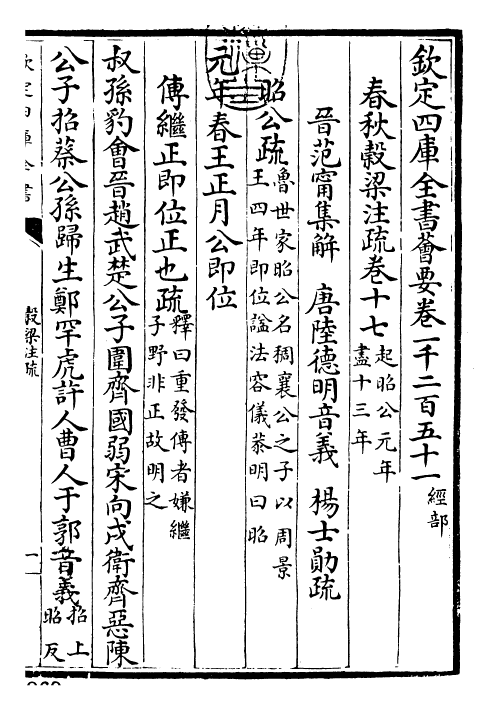 欽定四庫全書薈要卷一千二百五十一 經部
春秋穀梁注疏卷十七 起昭公元年
盡十三年
晉范甯集解 唐陸德明音義 楊士勛疏
昭公疏 魯世家昭公名稠襄公之子以周景
王四年即位諡法容儀恭明曰昭
元年春王正月公即位
傳繼正即位正也疏 釋曰重發傳者嫌繼
子野非正故明之
叔孫豹會晉趙武楚公子圍齊國弱宋向戌衛齊惡陳
公子招蔡公孫歸生鄭罕虎許人曹人于郭音義 招上
昭反
欽定四庫全書
穀梁注疏
一